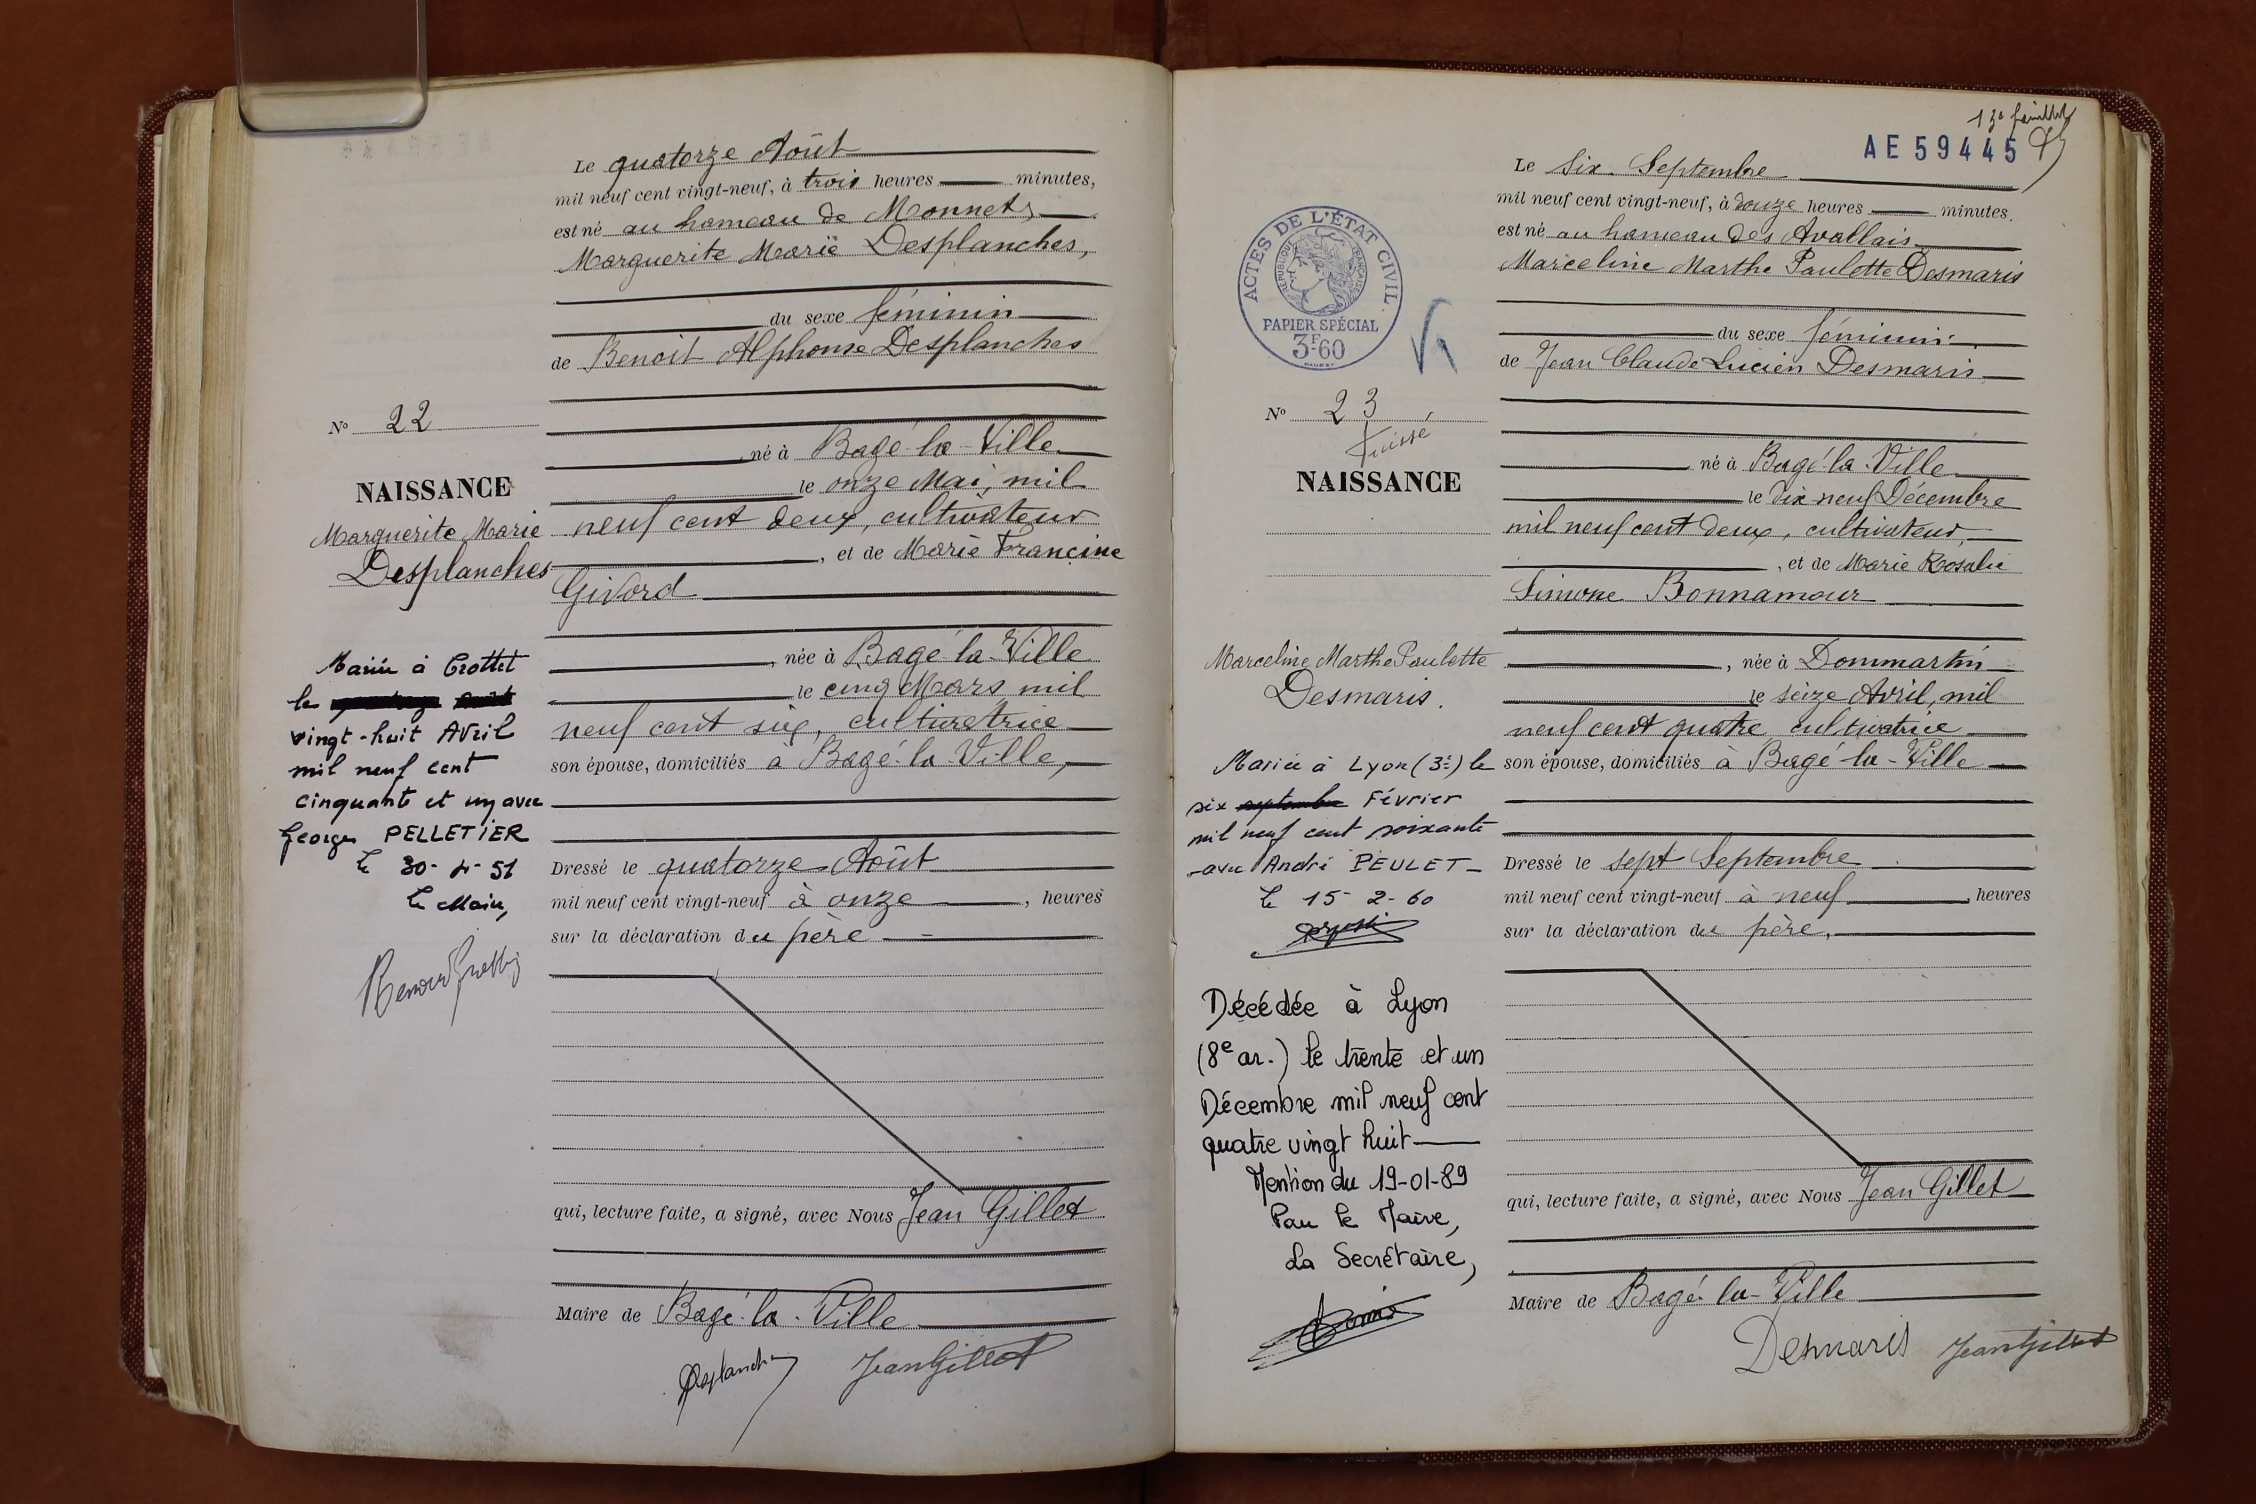 Le quatorze Août
mil neuf cent vingt-neuf, à trois heures minutes,
est né au hameau de Monnet,
Marguerite Marie Desplanches,
du sexe féminin
de Benoit Alphonse Desplanches
No 22
né à Bagé-la-Ville
NAISSANCE
le onze Mai, mil
Marguerite Marie
neuf cent deux, cultivateur
Desplanches
, et de Marie Francine
Givord
, née à Bagé-la-Ville
le cinq Mars mil
neuf cent six, cultivatrice
son épouse, domiciliés à Bagé-la-Ville,
Mariée à Crottet
le
vingt-huit Avril
mil neuf cent
cinquante et un avec
Georges PELLETIER
Le 30-4-51
Le Maire,
Dressé le quatorze Août
mil neuf cent vingt-neuf à onze , heures
sur la déclaration du père
qui, lecture faite, a signé, avec Nous Jean Gillet
Maire de Bagé-la-Ville
Desplanches JeanGillet
13e feuillet
AE 59445
Le Six Septembre
mil neuf cent vingt-neuf, à douze heures minutes.
est né au hameau des Avallais
Marceline Marthe Paulette Desmaris
ACTES DE L'ÉTAT CIVIL
RÉPUBLIQUE FRANÇAISE
PAPIER SPÉCIAL
3F60
du sexe féminin
de Jean Claude Lucien Desmaris
No 23
né à Bagé-la-Ville
NAISSANCE
le dix neuf Décembre
mil neuf cent deux, cultivateur,
, et de Marie Rosalie
Simone Bonnamour
Marceline Marthe Paulette
Desmaris.
, née à Dommartin
le seize Avril, mil
neuf cent quatre cultivatrice
son épouse, domiciliés à Bagé-la-Ville
Mariée à Lyon (3e) le
six septembre Février
mil neuf cent soixante
avec André PEULET
Le 15-2-60
Dressé le sept Septembre
mil neuf cent vingt-neuf à neuf , heures
sur la déclaration du père,
Décédée à Lyon
(8e ar.) le trente et un
Décembre mil neuf cent
quatre vingt huit
Mention du 19-01-89
Pour le Maire,
La Secrétaire,
qui, lecture faite, a signé, avec Nous Jean Gillet
Maire de Bagé-la-Ville
Desmaris JeanGillet